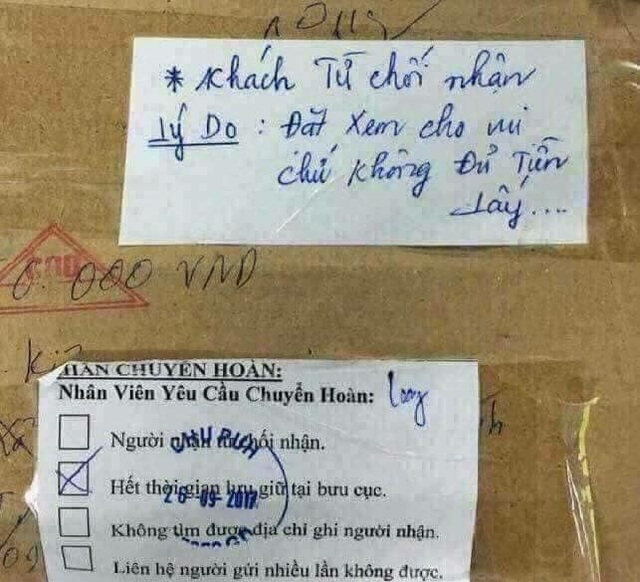 * Khách Từ chối nhận
Lý Do : Đặt Xem cho vui
chứ không Đủ Tiền
Lấy....
000 VND
CHUYỂN HOÀN:
Nhân Viên Yêu Cầu Chuyển Hoàn:
Người nhận từ chối nhận.
Hết thời gian lưu giữ tại bưu cục.
26-09-2017
Không tìm được địa chỉ ghi người nhận.
Liên hệ người gửi nhiều lần không được.